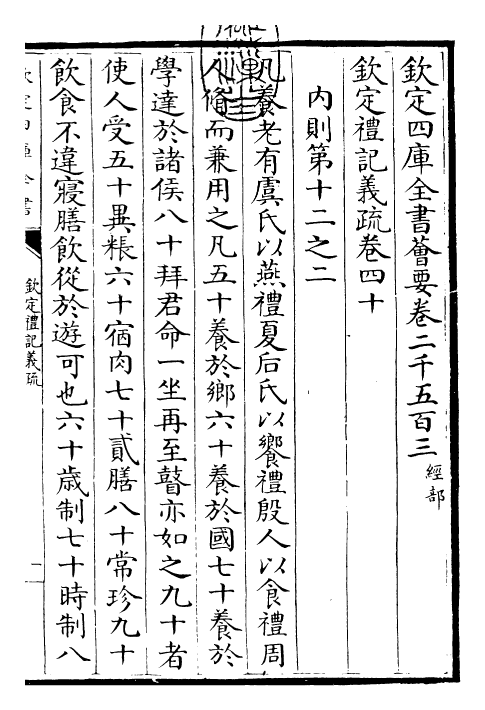 欽定四庫全書薈要卷二千五百三 經部
欽定禮記義疏卷四十
內則第十二之二
凡養老有虞氏以燕禮夏后氏以饗禮殷人以食禮周
人脩而兼用之凡五十養於鄉六十養於國七十養於
學達於諸侯八十拜君命一坐再至瞽亦如之九十者
使人受五十異粻六十宿肉七十貳膳八十常珍九十
飲食不違寢膳飲從於遊可也六十歲制七十時制八
欽定四庫全書
欽定禮記義疏
一